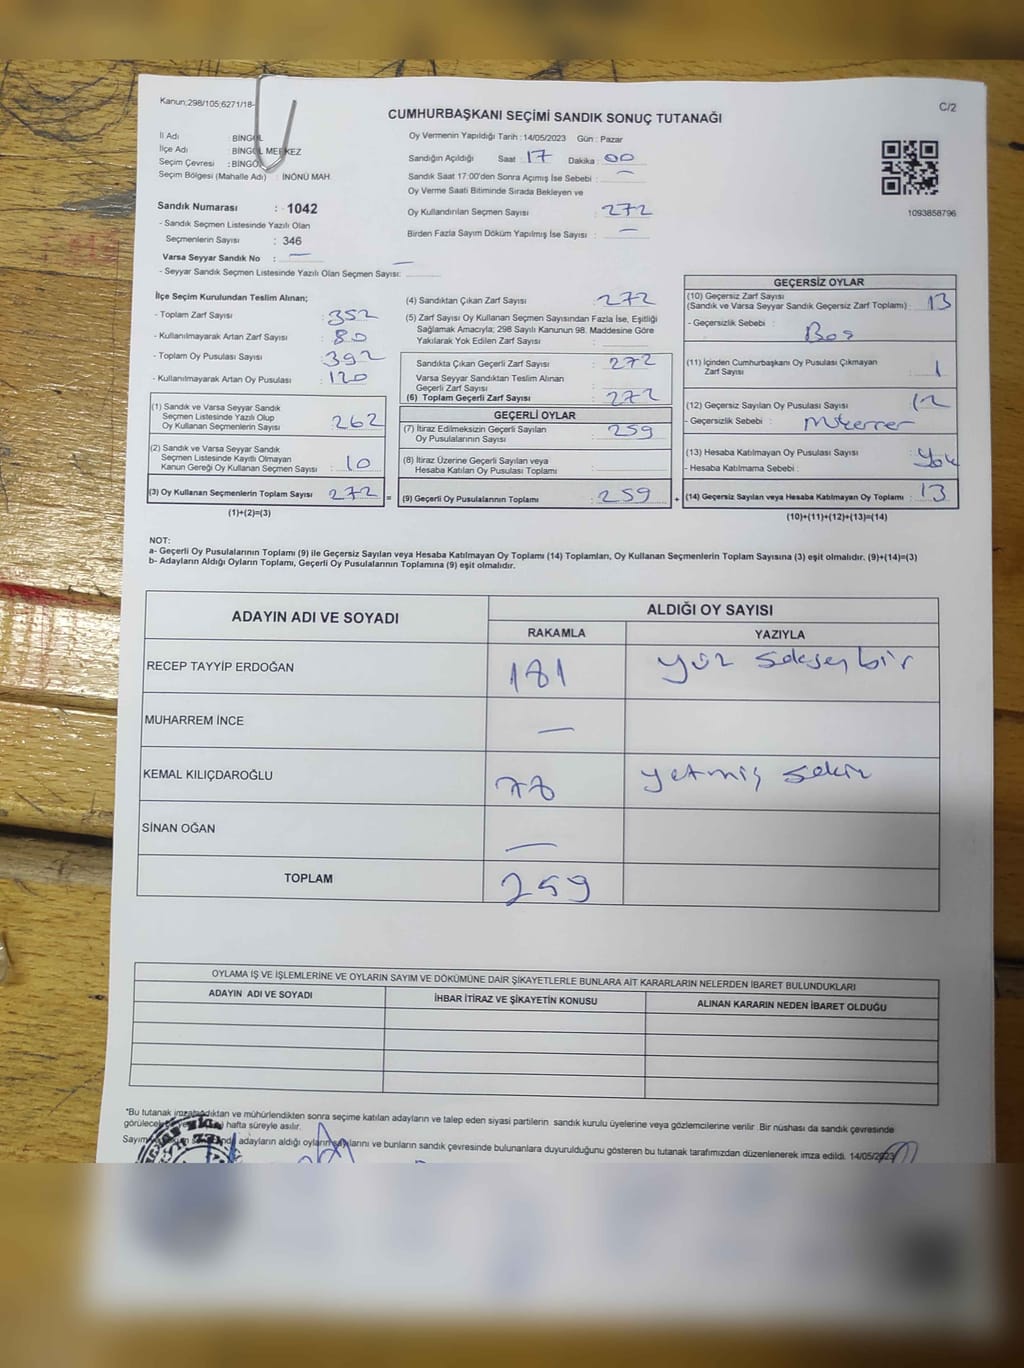 Kanun;298/105;6271/18-
C/2
CUMHURBAŞKANI SEÇİMİ SANDIK SONUÇ TUTANAĞI
İl Adı : BİNGÖL
İlçe Adı : BİNGÖL MERKEZ
Seçim Çevresi : BİNGÖL
Seçim Bölgesi (Mahalle Adı) : İNÖNÜ MAH.
Sandık Numarası : 1042
- Sandık Seçmen Listesinde Yazılı Olan
Seçmenlerin Sayısı : 346
Varsa Seyyar Sandık No : —
- Seyyar Sandık Seçmen Listesinde Yazılı Olan Seçmen Sayısı: —
Oy Vermenin Yapıldığı Tarih : 14/05/2023 Gün : Pazar
Sandığın Açıldığı Saat : 17 Dakika : 00
Sandık Saat 17:00'den Sonra Açımış İse Sebebi : —
Oy Verme Saati Bitiminde Sırada Bekleyen ve
Oy Kullandırılan Seçmen Sayısı : 272
Birden Fazla Sayım Döküm Yapılmış İse Sayısı : —
1093858796
İlçe Seçim Kurulundan Teslim Alınan;
- Toplam Zarf Sayısı : 352
- Kullanılmayarak Artan Zarf Sayısı : 80
- Toplam Oy Pusulası Sayısı : 392
- Kullanılmayarak Artan Oy Pusulası : 120
(1) Sandık ve Varsa Seyyar Sandık
Seçmen Listesinde Yazılı Olup
Oy Kullanan Seçmenlerin Sayısı : 262
(2) Sandık ve Varsa Seyyar Sandık
Seçmen Listesinde Kayıtlı Olmayan
Kanun Gereği Oy Kullanan Seçmen Sayısı : 10
(3) Oy Kullanan Seçmenlerin Toplam Sayısı : 272 =
(1)+(2)=(3)
(4) Sandıktan Çıkan Zarf Sayısı : 272
(5) Zarf Sayısı Oy Kullanan Seçmen Sayısından Fazla İse, Eşitliği
Sağlamak Amacıyla; 298 Sayılı Kanunun 98. Maddesine Göre
Yakılarak Yok Edilen Zarf Sayısı :
Sandıkta Çıkan Geçerli Zarf Sayısı : 272
Varsa Seyyar Sandıktan Teslim Alınan
Geçerli Zarf Sayısı :
(6) Toplam Geçerli Zarf Sayısı : 272
GEÇERLİ OYLAR
(7) İtiraz Edilmeksizin Geçerli Sayılan
Oy Pusulalarının Sayısı : 259
(8) İtiraz Üzerine Geçerli Sayılan veya
Hesaba Katılan Oy Pusulası Toplamı :
(9) Geçerli Oy Pusulalarının Toplamı : 259 +
GEÇERSİZ OYLAR
(10) Geçersiz Zarf Sayısı
(Sandık ve Varsa Seyyar Sandık Geçersiz Zarf Toplamı) : 13
- Geçersizlik Sebebi : Boş
(11) İçinden Cumhurbaşkanı Oy Pusulası Çıkmayan
Zarf Sayısı : 1
(12) Geçersiz Sayılan Oy Pusulası Sayısı : 12
- Geçersizlik Sebebi : Mükerrer
(13) Hesaba Katılmayan Oy Pusulası Sayısı : Yok
- Hesaba Katılmama Sebebi :
(14) Geçersiz Sayılan veya Hesaba Katılmayan Oy Toplamı : 13
(10)+(11)+(12)+(13)=(14)
NOT:
a- Geçerli Oy Pusulalarının Toplamı (9) ile Geçersiz Sayılan veya Hesaba Katılmayan Oy Toplamı (14) Toplamları, Oy Kullanan Seçmenlerin Toplam Sayısına (3) eşit olmalıdır. (9)+(14)=(3)
b- Adayların Aldığı Oyların Toplamı, Geçerli Oy Pusulalarının Toplamına (9) eşit olmalıdır.
ADAYIN ADI VE SOYADI
ALDIĞI OY SAYISI
RAKAMLA YAZIYLA
RECEP TAYYİP ERDOĞAN 181 yüz seksen bir
MUHARREM İNCE —
KEMAL KILIÇDAROĞLU 78 yetmiş sekiz
SİNAN OĞAN —
TOPLAM 259
OYLAMA İŞ VE İŞLEMLERİNE VE OYLARIN SAYIM VE DÖKÜMÜNE DAİR ŞİKAYETLERLE BUNLARA AİT KARARLARIN NELERDEN İBARET BULUNDUKLARI
ADAYIN ADI VE SOYADI İHBAR İTİRAZ VE ŞİKAYETİN KONUSU ALINAN KARARIN NEDEN İBARET OLDUĞU
*Bu tutanak imzalandıktan ve mühürlendikten sonra seçime katılan adayların ve talep eden siyasi partilerin sandık kurulu üyelerine veya gözlemcilerine verilir. Bir nüshası da sandık çevresinde
görülecek hafta süreyle asılır.
Sayım adayların aldığı oyların sayılarını ve bunların sandık çevresinde bulunanlara duyurulduğunu gösteren bu tutanak tarafımızdan düzenlenerek imza edildi. 14/05/2023